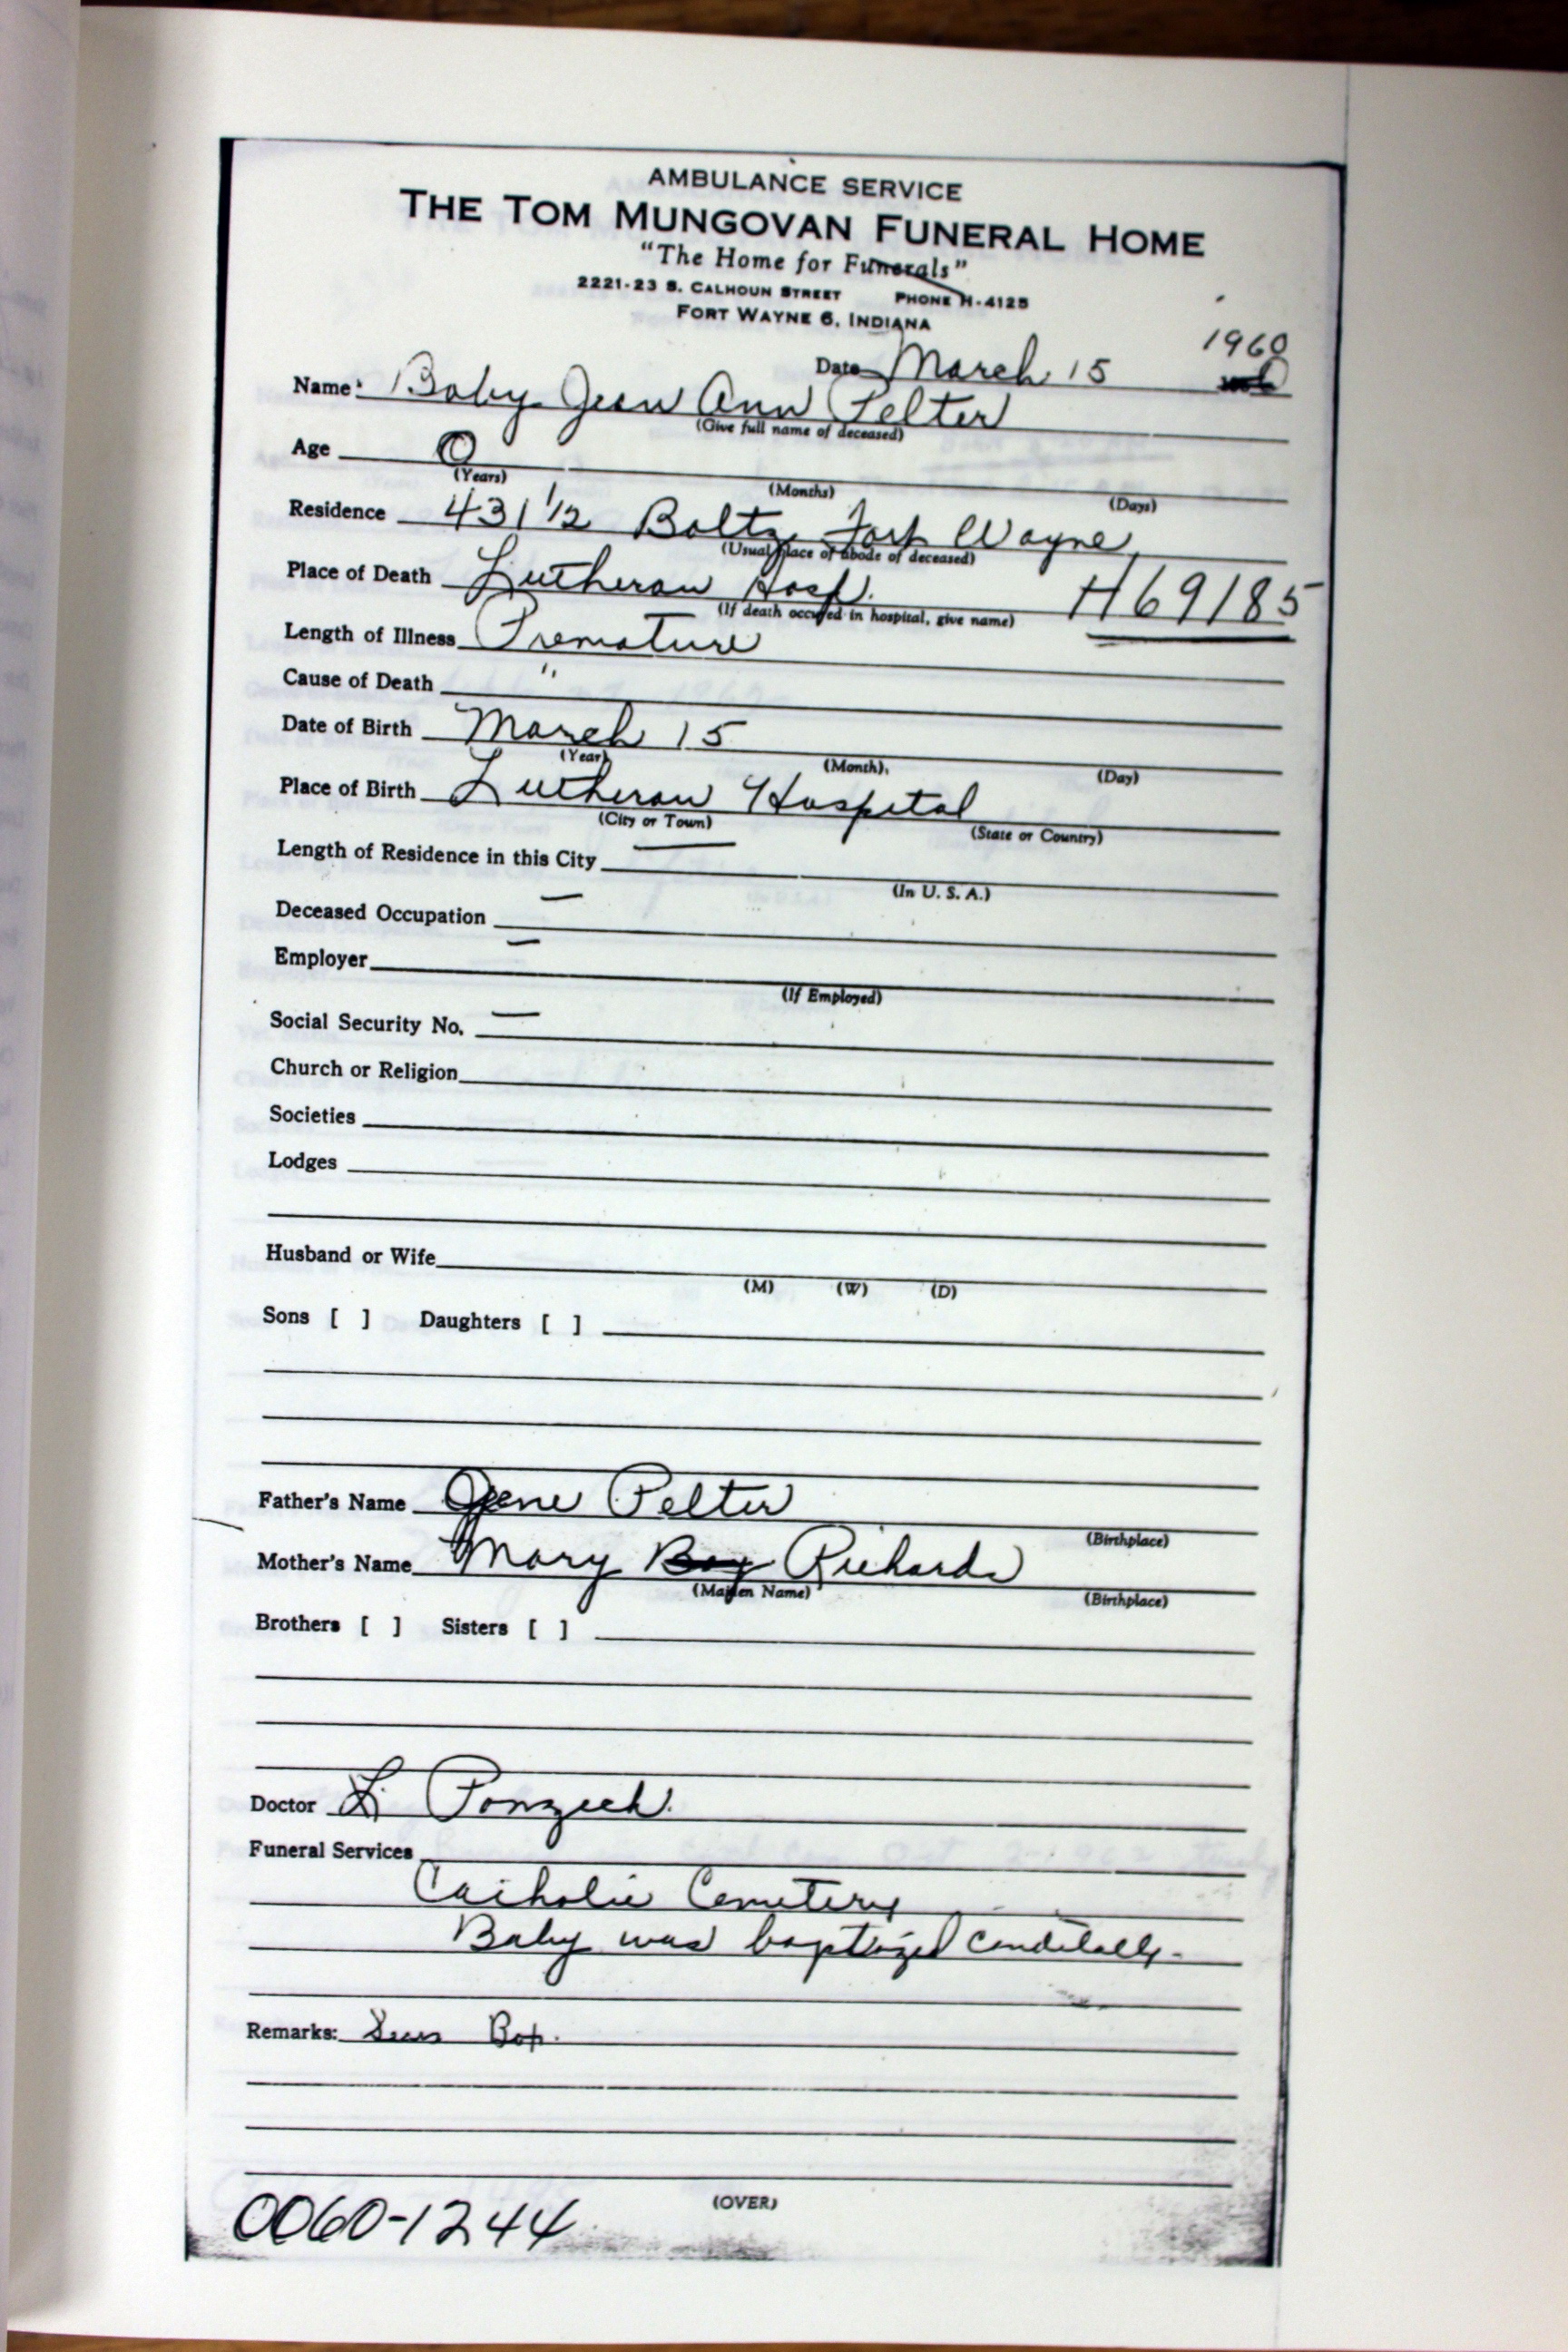 AMBULANCE SERVICE
THE TOM MUNGOVAN FUNERAL HOME
"The Home for Funerals"
2221-23 S. CALHOUN STREET PHONE H-4125
FORT WAYNE 6, INDIANA
1960
Date March 15
Name: Baby Jean Ann Pelter
(Give full name of deceased)
Age 0
(Years) (Months) (Days)
Residence 431 1/2 Boltz Fort Wayne,
(Usual place of abode of deceased)
Place of Death Lutheran Hosp. H69185
(If death occured in hospital, give name)
Length of Illness Premature
Cause of Death "
Date of Birth March 15
(Year) (Month) (Day)
Place of Birth Lutheran Hospital
(City or Town) (State or Country)
Length of Residence in this City —
(In U. S. A.)
Deceased Occupation —
Employer —
(If Employed)
Social Security No. —
Church or Religion
Societies
Lodges
Husband or Wife
(M) (W) (D)
Sons [ ] Daughters [ ]
Father's Name Gene Pelter
(Birthplace)
Mother's Name Mary Richards
(Maiden Name) (Birthplace)
Brothers [ ] Sisters [ ]
Doctor L
Funeral Services
Catholic Cemetery
Baby was baptized
Remarks:
(OVER)
0060-1244